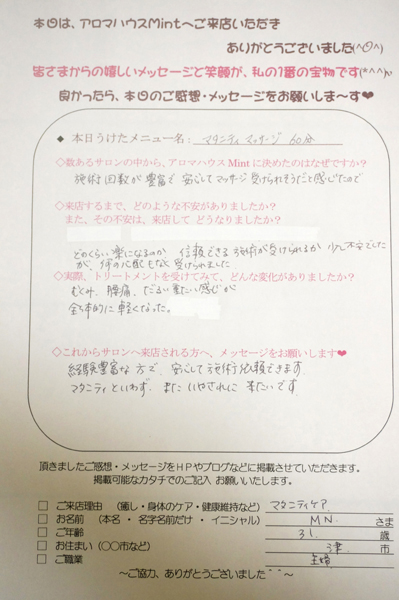 本日は、アロマハウスMintへご来店いただき
ありがとうございました(^O^)
皆さまからの嬉しいメッセージと笑顔が、私の1番の宝物です(*^^*)v
良かったら、本日のご感想・メッセージをお願いしま〜す♥
◆ 本日うけたメニュー名： マタニティ マッサージ 60分
◇数あるサロンの中から、アロマハウス Mint に決めたのはなぜですか？
施術回数が豊富で安心してマッサージ受けられそうだと感じたので
◇来店するまで、どのような不安がありましたか？
また、その不安は、来店して どうなりましたか？
どのくらい楽になるのか 信頼できる施術が受けられるか 少し不安でした
が、何の心配もなく受けられました
◇実際、トリートメントを受けてみて、どんな変化がありましたか？
むくみ、腰痛、だるい重たい感じが
全体的に軽くなった。
◇これからサロンへ来店される方へ、メッセージをお願いします♥
経験豊富な方で、安心して施術依頼できます。
マタニティといわず、またいやされに来たいです。
頂きましたご感想・メッセージをHPやブログなどに掲載させていただきます。
掲載可能なカタチでのご記入 お願いいたします。
□ ご来店理由（癒し・身体のケア・健康維持など） マタニティケア
□ お名前（本名・名字名前だけ・イニシャル） M.N. さま
□ ご年齢 31 歳
□ お住まい（○○市など） 津 市
□ ご職業 主婦
〜ご協力、ありがとうございました＾＾〜